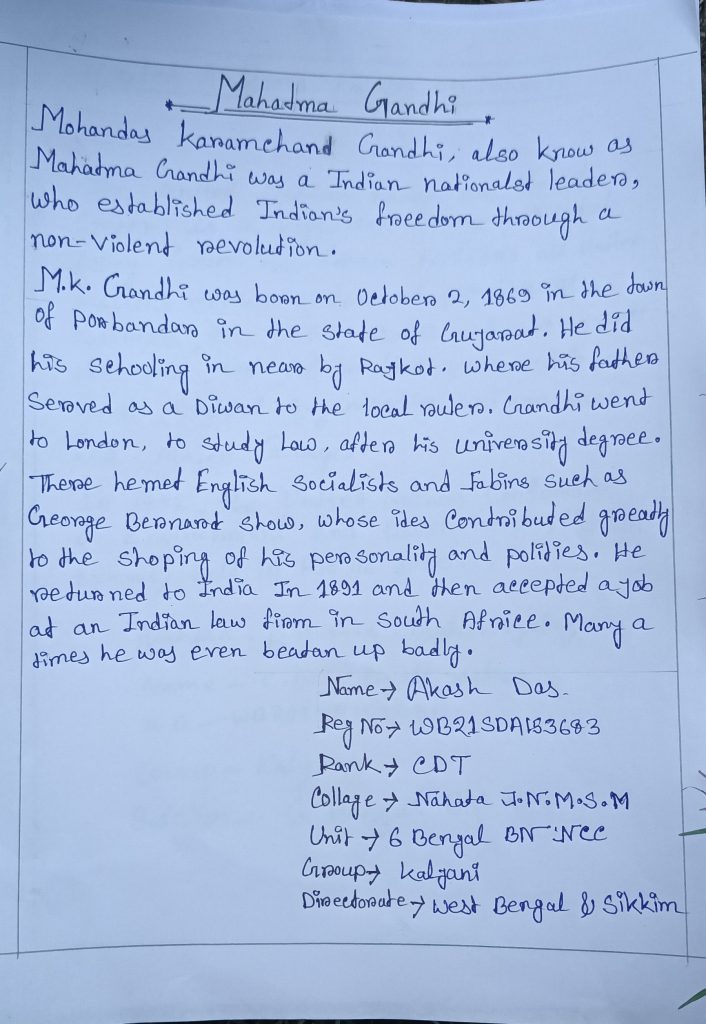 Mahatma Gandhi
Mohandas karamchand Gandhi, also know as
Mahatma Gandhi was a Indian nationalst leader,
who established Indian's freedom through a
non-violent revolution.
M.k. Gandhi was born on October 2, 1869 in the town
of Porbandar in the state of Gujarat. He did
his schooling in near by Rajkot. where his father
Served as a Diwan to the local ruler. Gandhi went
to London, to study Law, after his university degree.
There he met English Socialists and Fabins such as
George Bernard Show, whose ides Contributed greatly
to the shoping of his personality and polities. He
returned to India In 1891 and then accepted a job
at an Indian law firm in South Africe. Many a
times he was even beatan up badly.
Name → Akash Das.
Reg No → WB21SDA183683
Rank → CDT
Collage → Nahata J.N.M.S.M
Unit → 6 Bengal BN NCC
Group → kalyani
Directorate → West Bengal & Sikkim